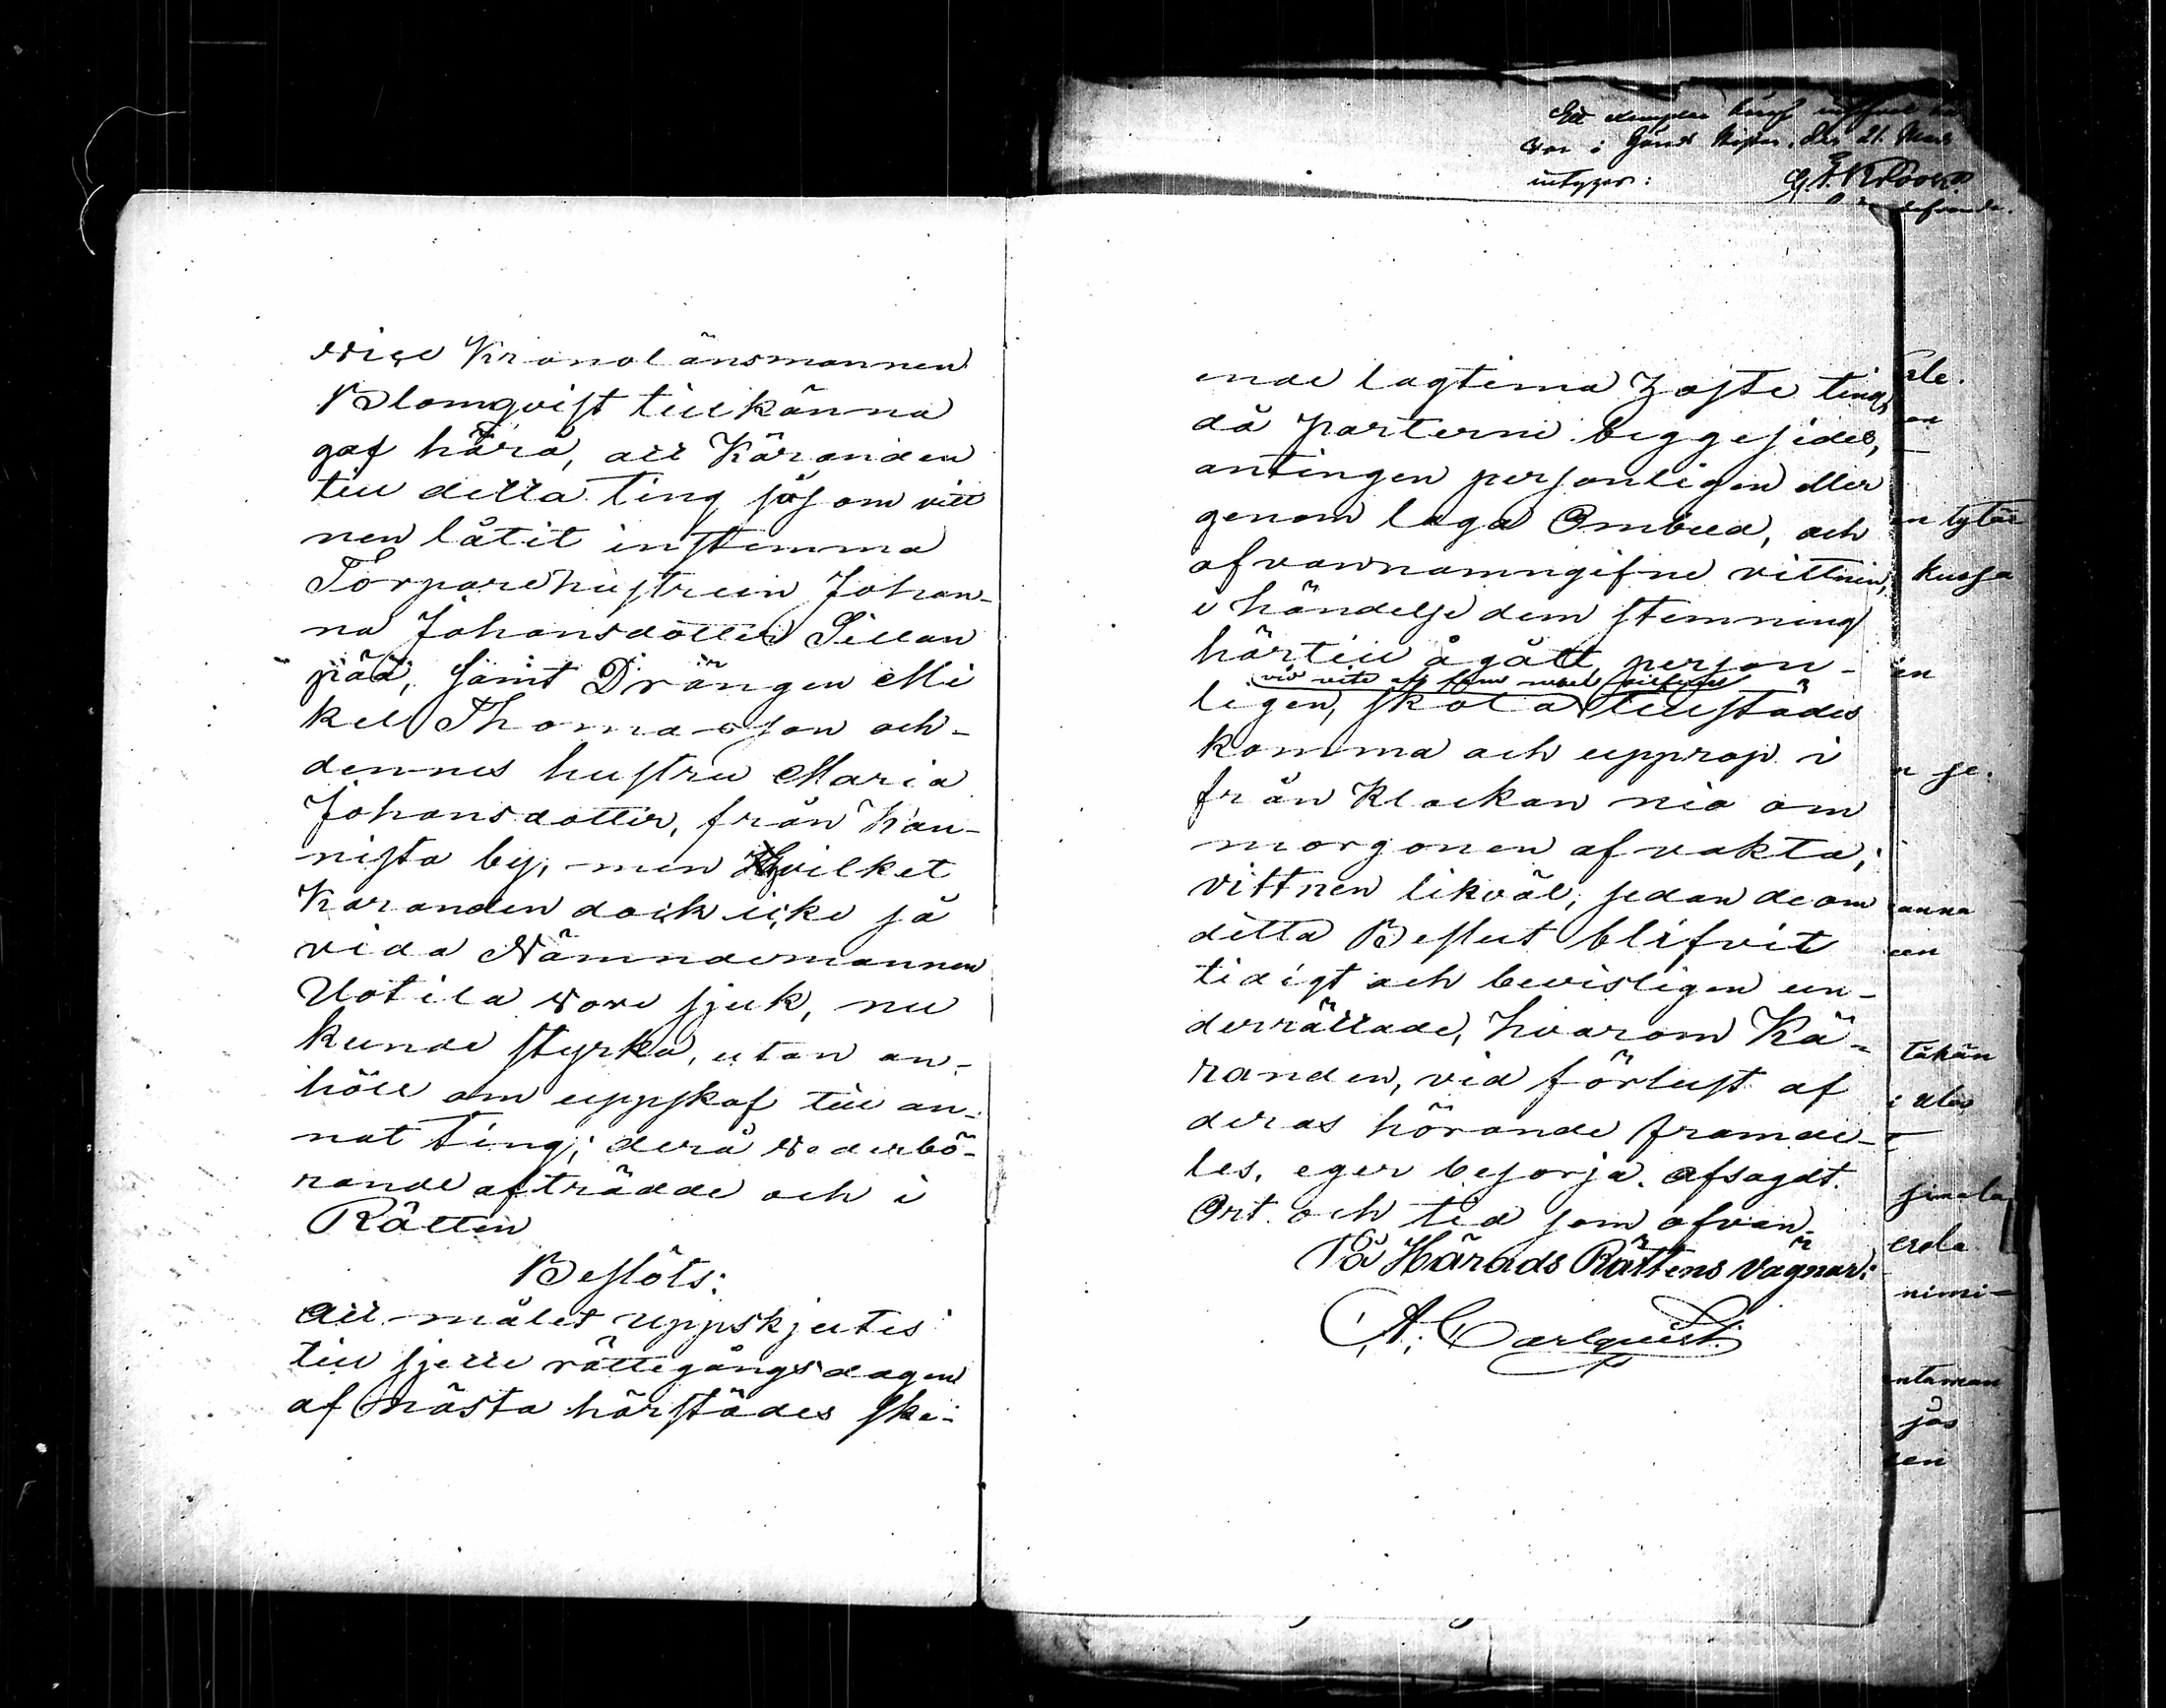 Vice Kronolänsmannen
Blomqvist tillkänna
gaf härå, att Käranden
till detta Ting såsom vitt
nen låtit instemma
Torparehustrun Johan-
na Johansdotter Sillan
pää, samt Drängen Mi
kel Thomasson och
dennes hustru Maria
Johansdotter, från Kan-
nisto by, men hvilket
Käranden dock icke så
vida Nämndemannen
Uotila vore sjuk, nu
kunde styrka, utan an-
höll om uppskof till an-
nat Ting; derå vederbö-
rande afträdde och i
Rätten
Beslöts:
Att målet uppskjutes
till sjette rättegångsdagen
af nästa härstädes ske-
ende lagtima Hösteting
då parterne beggesides,
antingen personligen eller
genom laga Ombud, och
ofvannamngifne vittnen,
i händelse dem stemning
härtill ågått, person-
vid vite af fem mark silfver
ligen, skola tillstädes
komma och upprop i
från Klockan nio om
morgonen afvakta;
vittnen likväl, sedan de om
detta Beslut blifvit
tidigt och bevisligen un-
derrättade, hvarom Kä-
randen, vid förlust af
deras hörande framde-
les, eger besörja. Afsagdt.
Ort och tid som ofvan.
På Härads Rättens Vägnar:
A. Carlquist.
Ett exemplar
den 21. Mars
intygar:
en
tytär
kussa
en
anna
een
tähän
nimi-
jäs
een